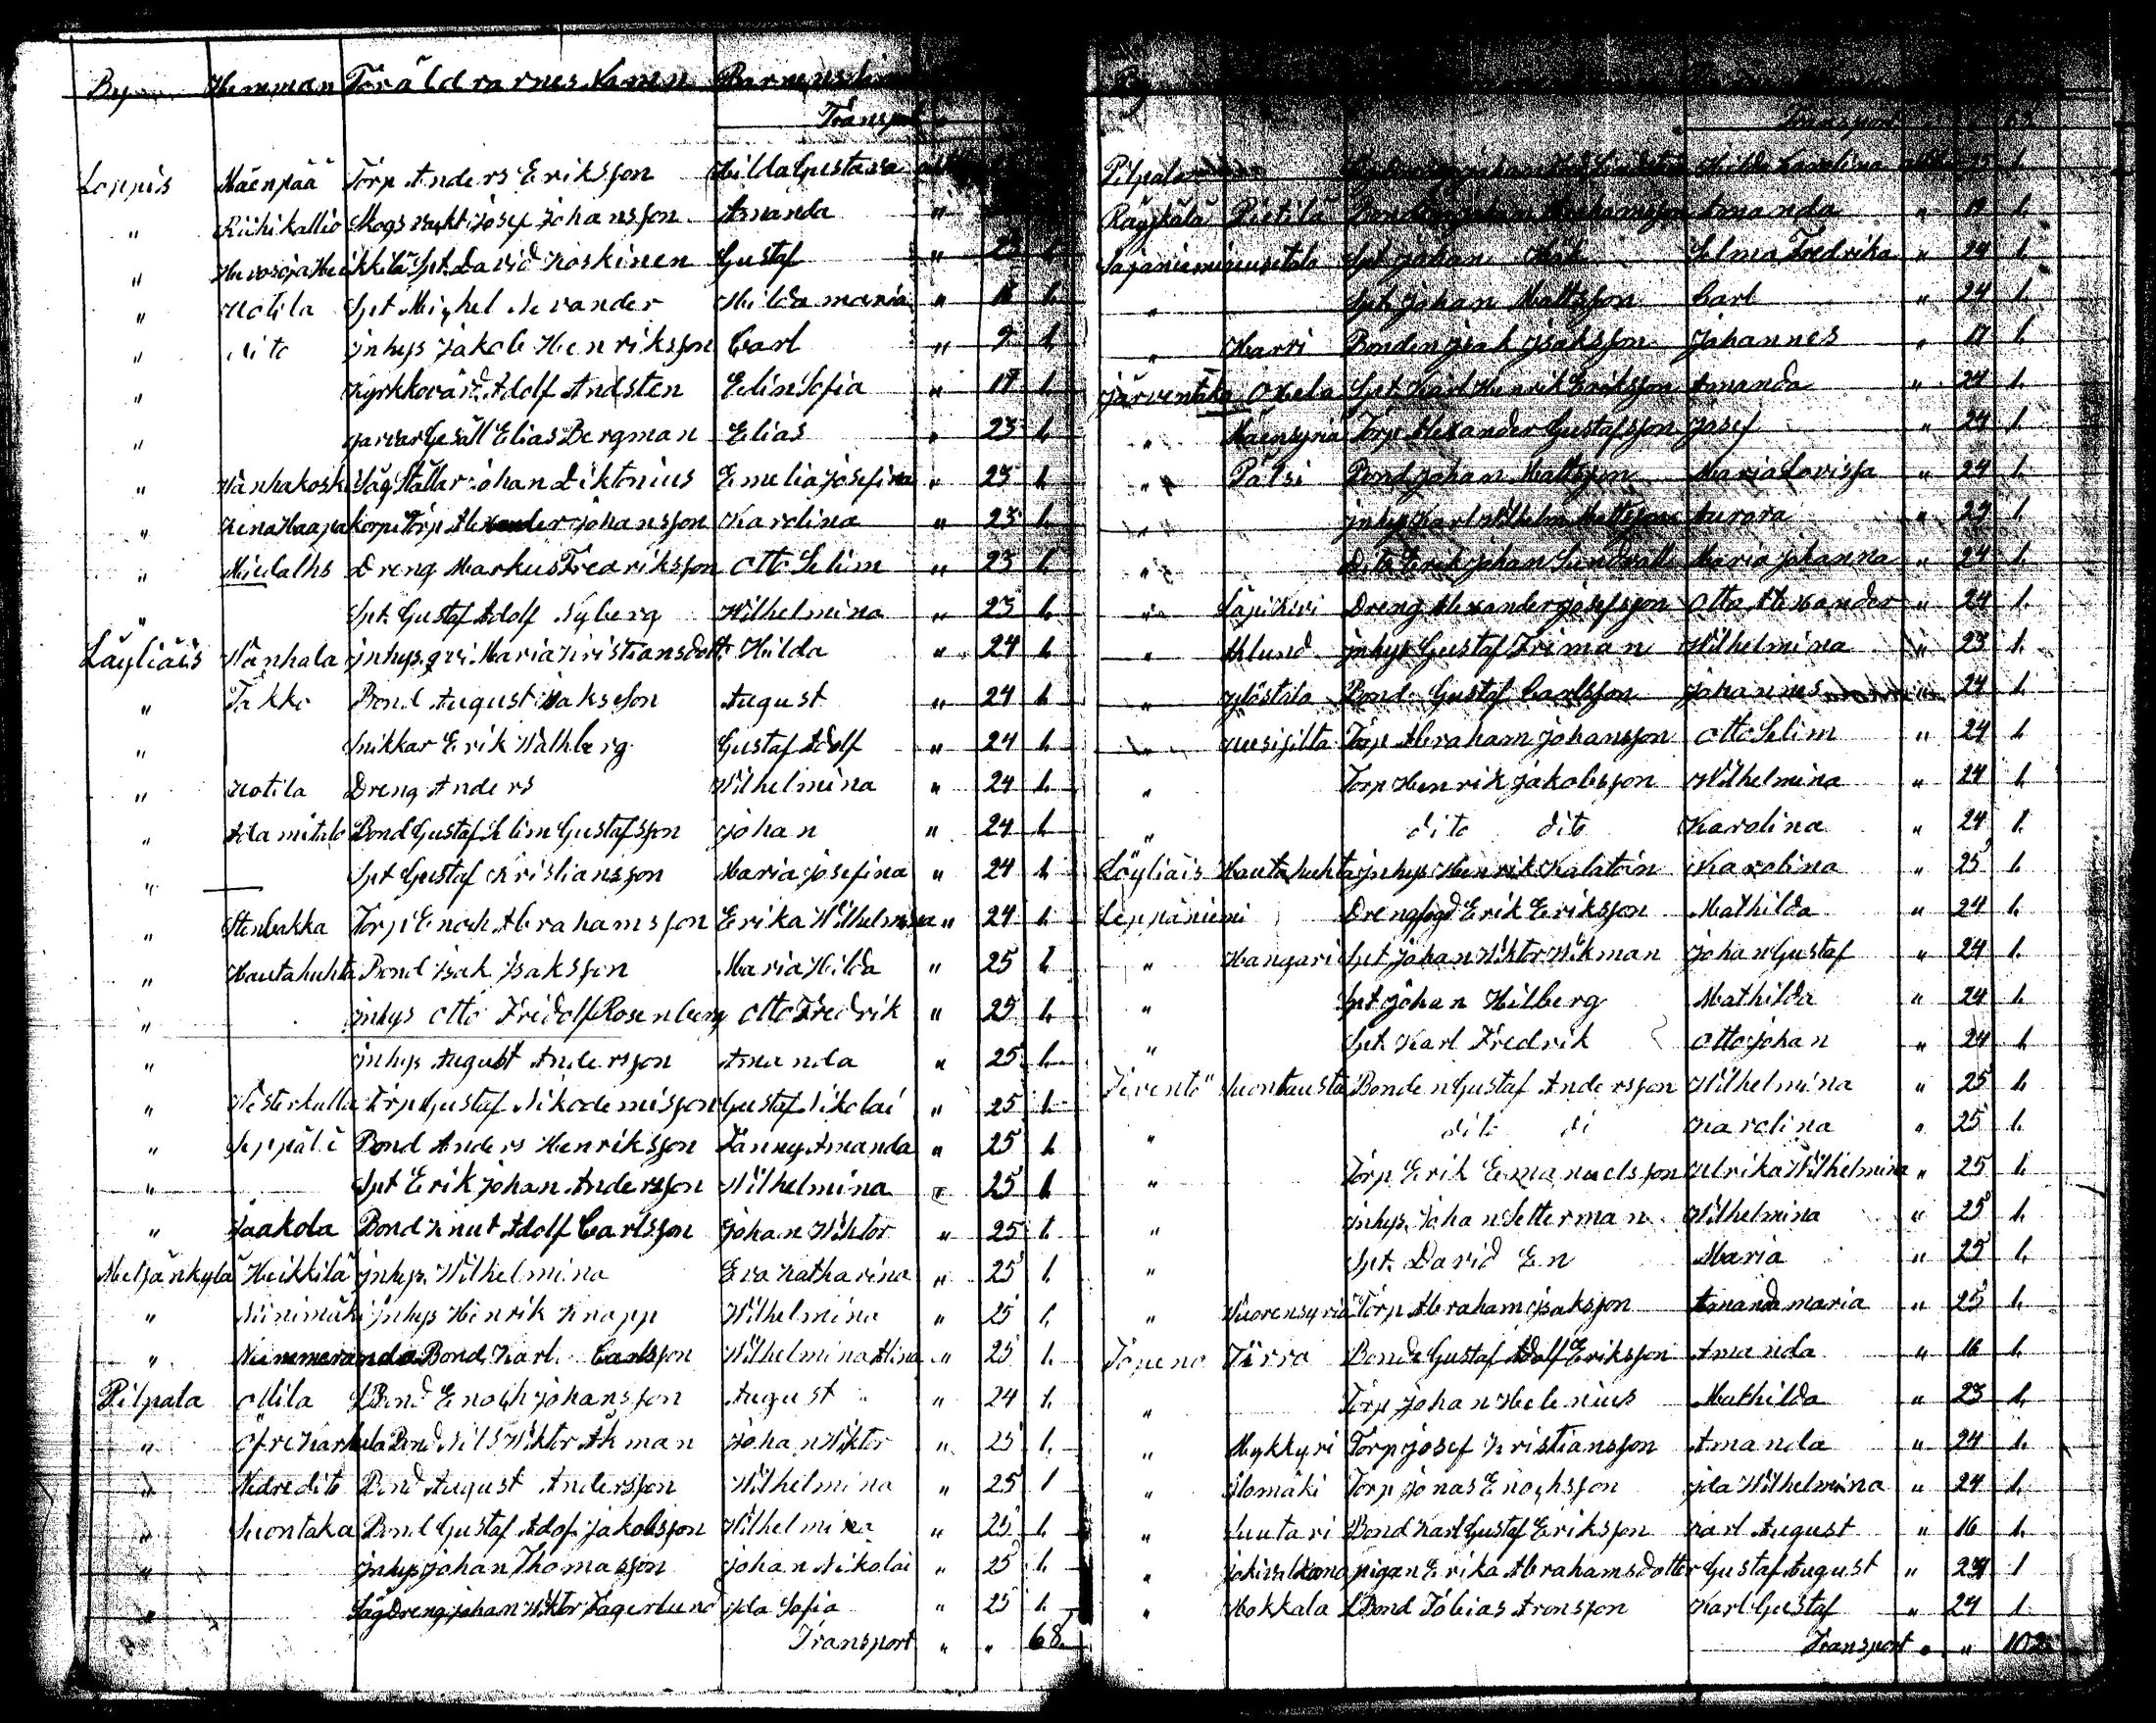 By Hemman Föräldrarnes Namn Barnens
Transport
Loppis Mäenpää Torp Anders Eriksson Hilda Gustava
" Riihikallio Skogsvakt Josef Johansson Amanda "
" Hevosoja Heikkilä Spt. David Koskinen Gustaf " 23 1.
" Uotila Spt Michel Nevander Hilda maria " 18 1.
" dito inhys Jakob Henriksson Carl " 9 1.
" Kyrkkovärd Adolf Andsten Edin Sofia " 17 1.
" garvar Gesäll Elias Bergman Elias " 23 1.
" Wanhakoski Såg Ställar Johan Diktonius Emelia Josefina " 23 1
" Haapakorpi Torp Alexander Johansson Karolina " 23 1.
" Dreng Markus Fredriksson Otto Selim " 23 1.
" Spt. Gustaf Adolf Nyberg Wilhelmina " 23 1.
Läyliäis Wanhala inhys. qvi. Maria Kristiansdott. Hilda " 24 1.
" Takko Bond August Isaksson August " 24 1.
" Snikkar Erik Wathberg Gustaf Adolf " 24 1.
" Uotila Dreng Anders Wilhelmina " 24 1.
" Adamitalo Bond Gustaf Selim Gustafsson Johan " 24 1.
" Spt Gustaf Kristiansson Maria Josefina " 24 1.
" Stenbakka Torp Enoch Abrahamsson Erika Wilhelmina " 24 1.
" Hautahuhta Bond Isak Isaksson Maria Hilda " 25 1.
" inhys Otto Fridolf Rosenberg Otto Fredrik " 25 1.
" inhys August Andersson Amanda " 25 1.
" Westerkulla Torp Gustaf Nikodemisson Gustaf Nikolai " 25 1.
" Seppälä Bond Anders Henriksson Fanny Amanda " 25 1.
" Spt Erik Johan Andersson Wilhelmina " 25 1
" Jaakola Bond Knut Adolf Carlsson Johan Wiktor " 25 1.
Metsänkylä Heikkilä inhys. Wilhelmina Eva Katharina " 25 1.
" Niinimäki inhys Henrik Knapp Wilhelmina " 25 1.
" Nummeranda Bond Karl Carlsson Wilhelmina Alina " 25 1.
Pilpala Ollila LBond Enoch Johansson August " 24 1.
" Öfre Karhula Bond Nils Wiktor Åkman Johan Wiktor " 25 1.
" Nedre dito Bond August Andersson Wilhelmina " 25 1
" Suontaka Bond Gustaf Adof Jakobsson Wilhelmina " 25 1.
" inhys Johan Thomasson Johan Nikolai " 25 1.
" Såg Dreng Johan Wiktor Fagerlund Ida Sofia " 25 1.
Transport " " 68.
By
Transport
Pilpala Hilda Karolina 25 1.
Räyskälä Pietilä Bonden Abrahamsson Amanda " 19 1.
Sajaniemi uusitalo Spt Johan Selma Fredrika " 24 1.
" Spt. Johan Mattsson Carl " 24 1.
" Harri Bonden Isak Isaksson Johannes " 17 1.
Järventaka Okela Spt. Karl Henrik Eriksson Amanda " 24 1.
" Mäensyrjä Torp Alexander Gustafsson Josef " 24 1.
" Pälsi Bond Johan Mattsson Maria Lovissa " 24 1.
" inhys Karl Wilhelm Mattsson Aurora " 23 1.
" Dito Erik Johan Sundvall Maria Johanna " 24 1.
" Läpikivi Dreng Alexander Josefsson Otto Alexander " 24 1.
" Ahlund inhys Gustaf Friman Wilhelmina " 23 1.
" Ylöstalo Bond. Gustaf Carlsson Johannes " 24 1.
" Uusisilta Torp Abraham Johansson Otto Selim " 24 1.
" Torp Henrik Jakobsson Wilhelmina " 24 1.
" dito dito Karolina " 24 1.
Löyliäis Hautahuhta inhys Henrik Kalatoin Karolina " 25 1.
Leppäniemi Drengfogd Erik Eriksson Mathilda " 24 1.
" Hangari Spt Johan Wiktor Wikman Johan Gustaf " 24 1.
" Spt Johan Hilberg Mathilda " 24 1.
" Spt. Karl Fredrik Otto Johan " 24 1.
Tevento Suontausta Bonden Gustaf Andersson Wilhelmina " 25 1.
" dito di Karolina " 25 1.
" Torp Erik Emanuelsson Ulrika Wilhelmina " 25 1.
" inhys. Johan Setterman Wilhelmina " 25 1.
" Spt. David En Maria " 25 1.
" Wuorensyrjä Torp Abraham Isaksson Amanda maria " 25 1.
Topeno Tirra Bond Gustaf Adolf Eriksson Amanda " 16 1.
" Torp Johan Helenius Mathilda " 23 1.
" Mykkyri Torp Josef Kristiansson Amanda " 24 1.
" Ilomäki Torp Jonas Enochsson Ida Wilhelmina " 24 1.
" Suutari Bond Karl Gustaf Eriksson Karl August " 16 1.
" pigan Erika Abrahamsdotter Gustaf August " 24 1
" Hokkala LBond Tobias Aronsson Karl Gustaf " 24 1
Transport " " 102